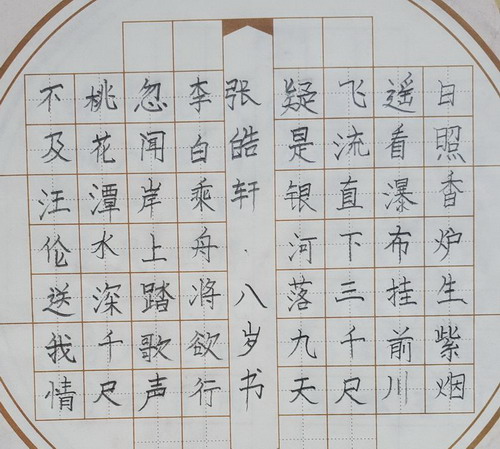 日照香炉生紫烟
遥看瀑布挂前川
飞流直下三千尺
疑是银河落九天
张皓轩·八岁书
李白乘舟将欲行
忽闻岸上踏歌声
桃花潭水深千尺
不及汪伦送我情